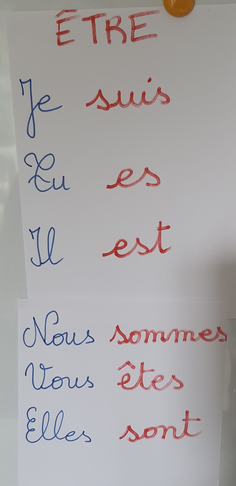 ÊTRE
Je suis
Tu es
Il est
Nous sommes
Vous êtes
Elles sont